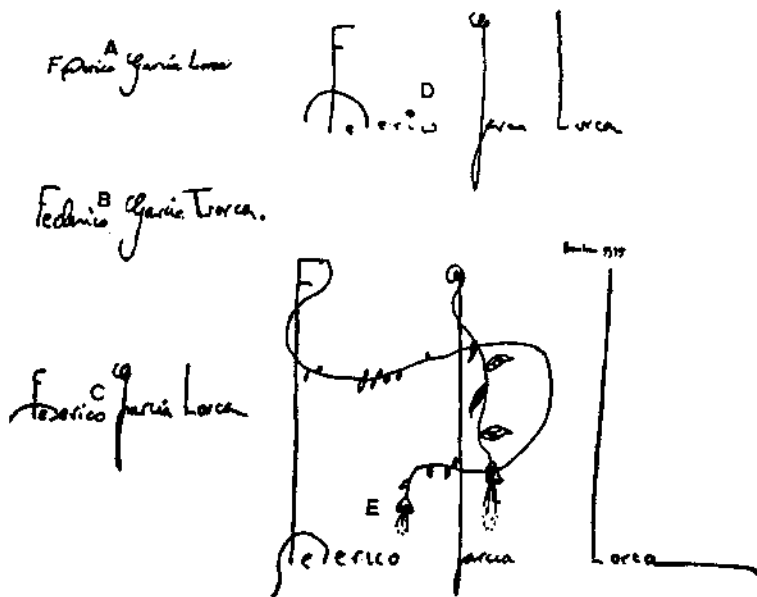 A
Federico García Lorca
D
Federico García Lorca
B
Federico García Lorca.
C
Federico García Lorca
E
Federico García Lorca